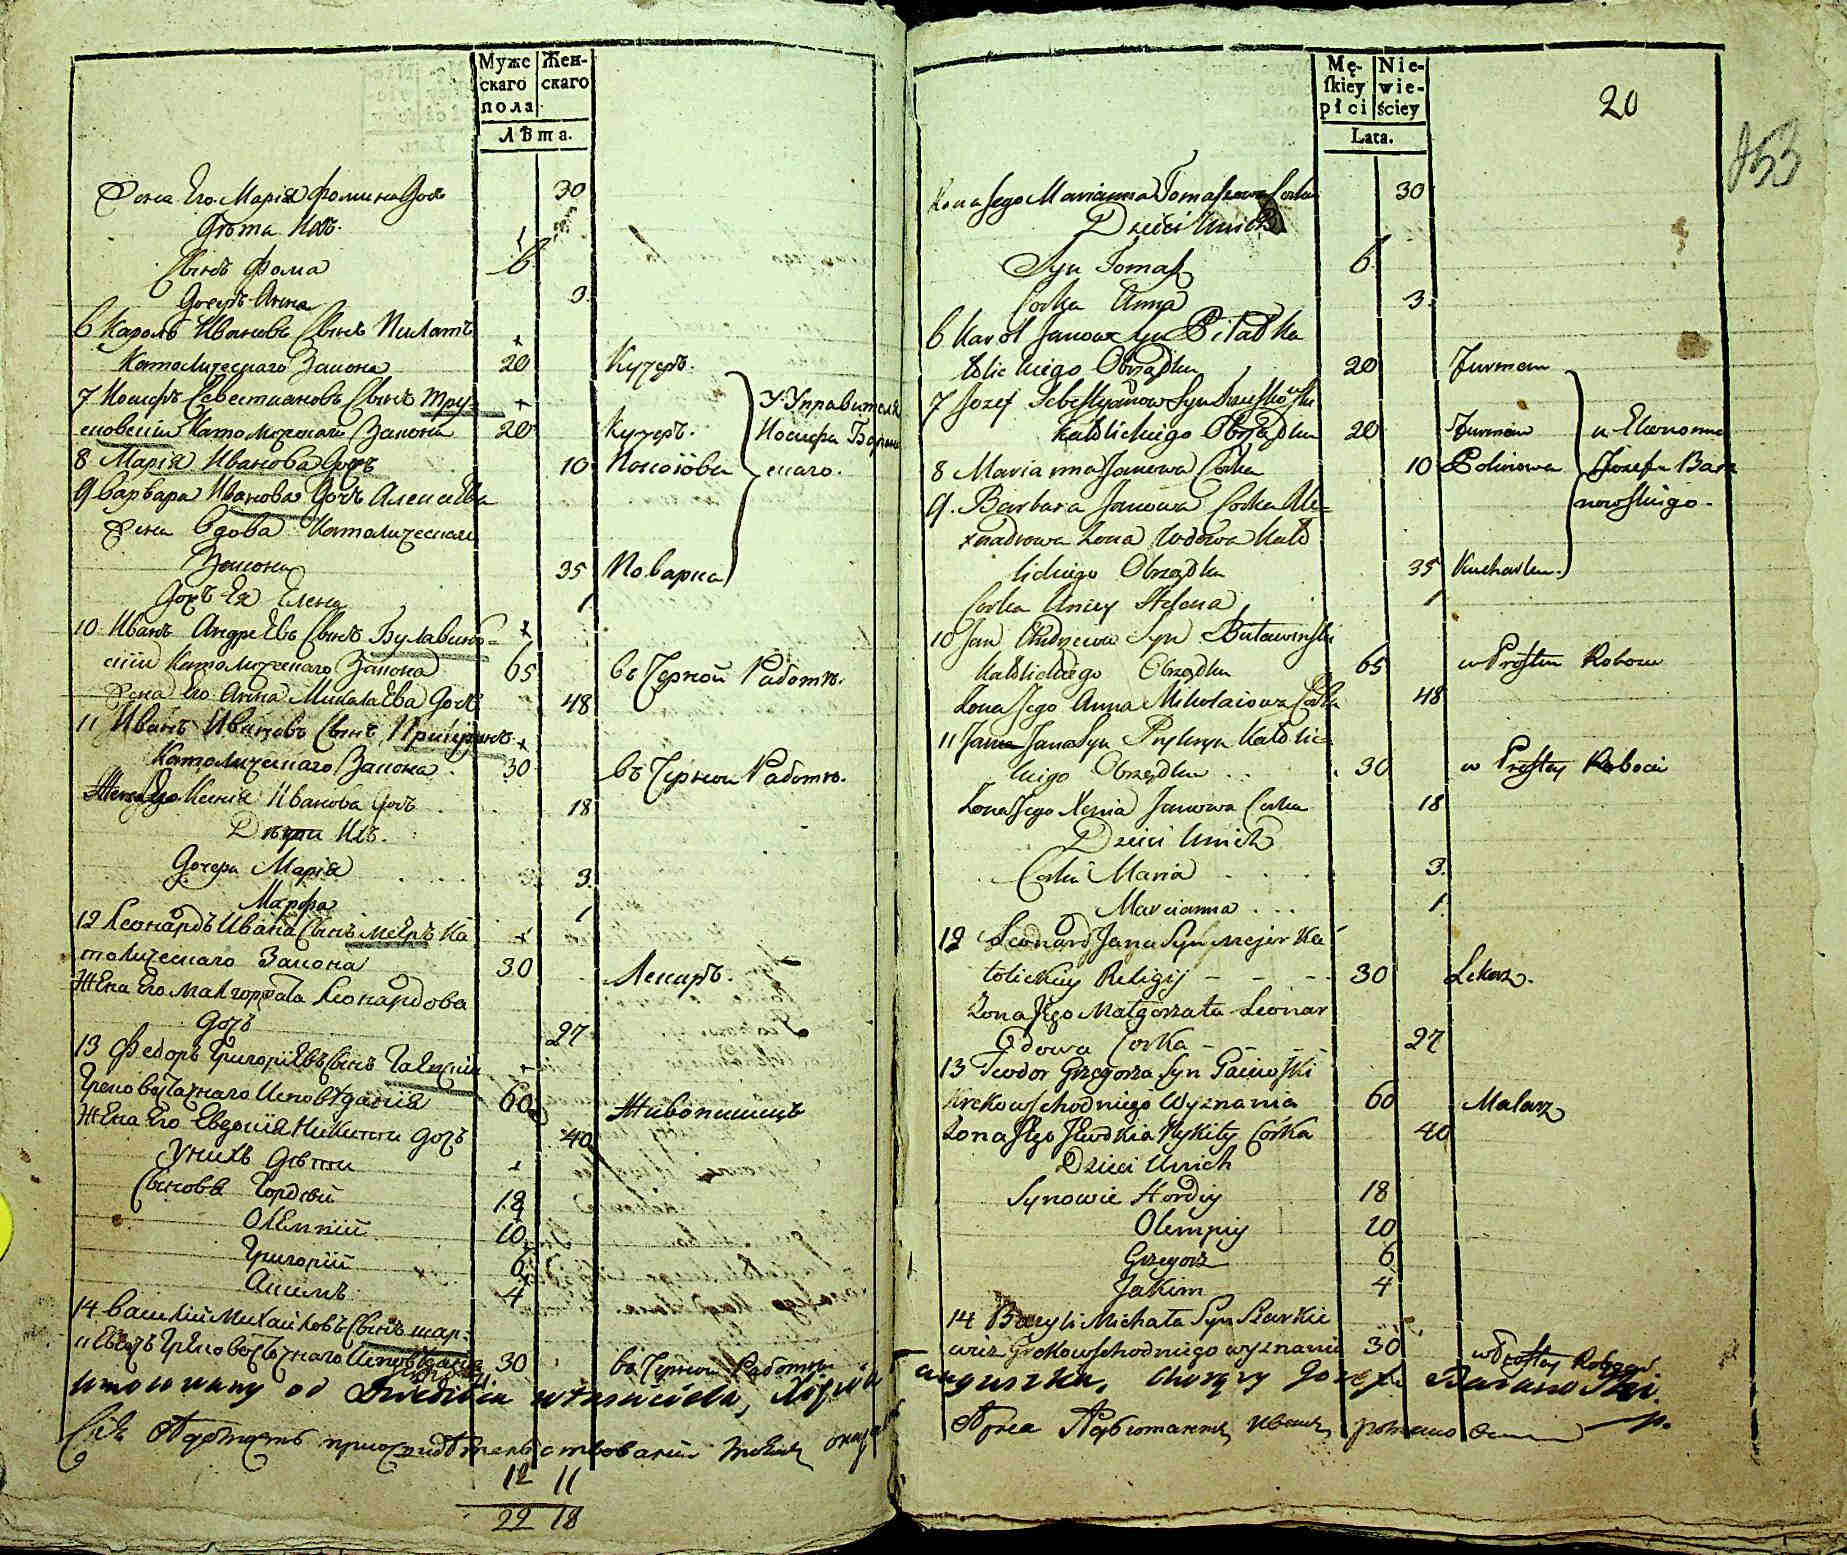 Муже
скаго
пола
Жен-
скаго
Лѣта.
Жена Его Марія Фомина Дочь 30
Дѣти Ихъ.
Сынъ Фома 6
Дочерь Анна 3.
6 Кароль Ивановъ Сынъ Пилатъ
Католическаго Закона 20 Кучеръ.
7 Іосифъ Севестиановъ Сынъ Тру-
сковский Католическаго Закона 20 Кучеръ.
У Управителя
Іосифа Баранов
скаго.
8 Марія Иванова Дочь 10 Покоіова
9 Варвара Иванова Дочь Алексѣева
Жена Вдова Католическаго
Закона 35 Поварка
Дочь Ея Елена 1
10 Иванъ Андреевъ Сынъ Булавинъ-
скій Католическаго Закона 65 въ Черной Работѣ.
Жена Его Анна Миколаева Дочь 48
11 Иванъ Ивановъ Сынъ
Католическаго Закона 30 въ Черной Работѣ.
Жена Его Ксенія Иванова Дочь 18
Дѣти Ихъ.
Дочери Марія 3.
Марфа 1
12 Леонардъ Ивана Сынъ Меѣръ Ка
толическаго Закона 30 Лекаръ.
Жена Его Малгоржата Леонардова
Дочь 27
13 Федоръ Григоріевъ Сынъ
Греко восточнаго Исповѣданія 60 Живописецъ
Жена Его Евдокія Никиты Дочь 40
У нихъ Дѣти
Сыновья Гордѣй 18
Олемпій 10
Григорій 6
Акимъ 4
14 Василій Михайловъ Сынъ Шар-
кевичъ Греко восточнаго Исповѣданія 30 въ Черной Работѣ
12 11
22 18
Mę-
ſkiey
płci
Nie-
wie-
ściey
Lata.
20
853
Żona Jego Marianna Tomaszowa Corka 30
Dzieci Unich
Syn Tomasz 6
Corka Anna 3.
6 Karol Janow Syn Pilat Ka
tolickiego Obrządku 20 Furman
7 Jozef Sebestyanow Syn Truskowski
Katolickiego Obrządku 20 Furman
u Ekonoma
Jozefa Bara
nowskiego.
8 Marianna Janowa Corka 10 Pokoiowa
9. Barbara Janowa Corka Ale-
xandrowa Zona Wdowa Kato
lickiego Obrządku 35 Kucharka.
Corka Uniey Helena 1
10 Jan Andrzeiow Syn Buławinski
Katolickiego Obrządku 65 w Prostey Robocie
Zona Jego Anna Mikołaiowa Corka 48
11 Jan Jana Syn Katolic-
kiego Obrządku 30 w Prostey Roboci
Zona Jego Xenia Janowa Corka 18
Dzieci Unich
Corki Maria 3.
Marcianna 1.
12 Leonard Jana Syn Mejer Ka
tolickiey Religiy 30 Lekarz.
Zona Jego Małgorzata Leonar
dowa Corka 27
13 Teodor Grzegorza Syn
Grekowschodniego Wyznania 60 Malarz
Zona Jego Jewdokia Nykity Córka 40
Dzieci Unich
Synowie Hordiy 18
Olempiy 10
Grzegorz 6
Jakim 4
14 Bazyli Michała Syn Szarkie
wicz Grekowschodniego wyznania 30 w Prostey Roboci
umocowany od Dziedzica własciciela, Xięcia
Jozef Baranowski.